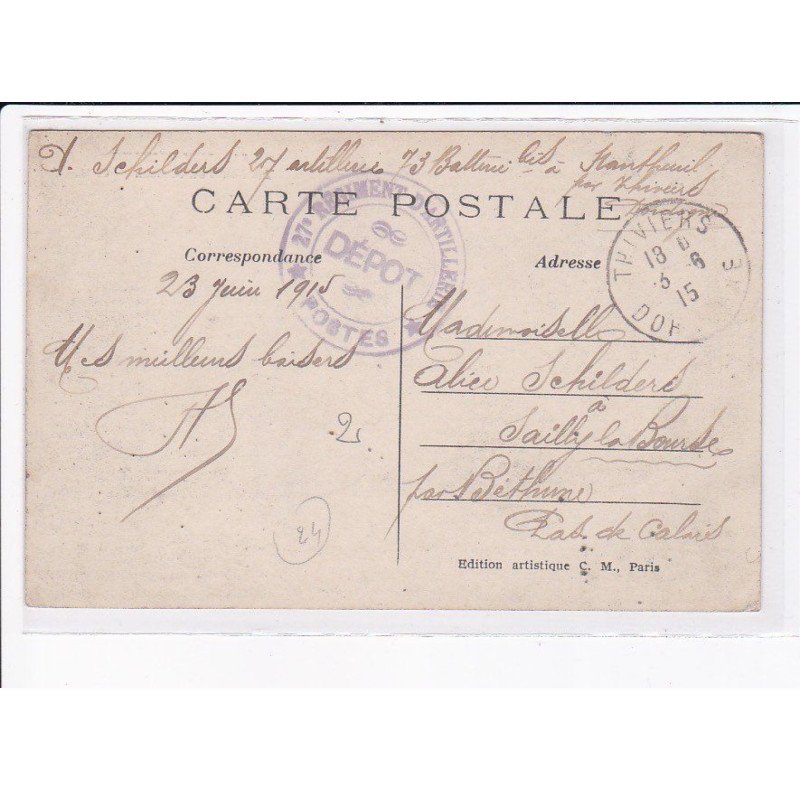 A. Schilders 27 artillerie 73 Batterie bis à Nantheuil
par Thiviers
Dordogne
CARTE POSTALE
27e RÉGIMENT D'ARTILLERIE
DÉPOT
POSTES
THIVIERS
18
3 6
15
DOR NE
Correspondance
Adresse
23 Juin 1915
Mes meilleurs baisers
AS
2
24
Mademoiselle
Alice Schilders
à
Sailly la Bourse
par Béthune
Pas de Calais
Edition artistique C. M., Paris